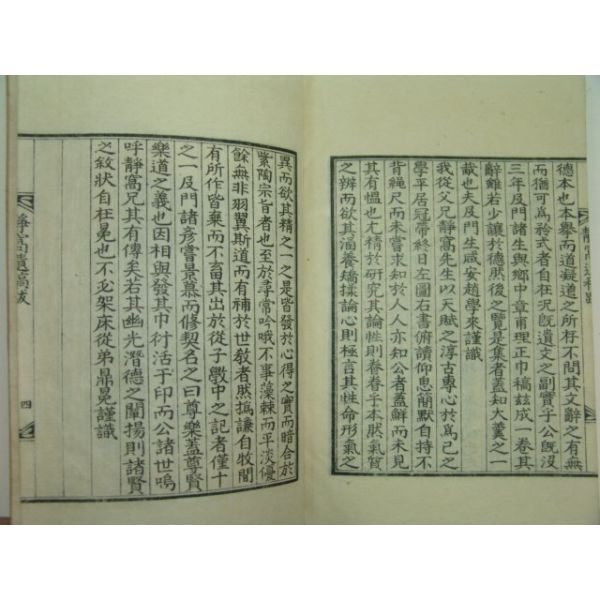 德本也本擧而道凝道之所存不問其文辭之有無
而猶可爲矜式者自在況旣遺文之副實乎公旣沒
三年及門諸生與鄉中章甫理正巾稿玆成一卷其
辭雖若少讓於德然後之覽是集者盖知大羹之一
胾也夫及門生咸安趙學來謹識
我從父兄靜窩先生以天賦之淳古專心於爲己之
學平居冠帶終日左圖右書俯讀仰思簡默自持不
背繩尺而未嘗求知於人人亦知公者盖鮮而未見
其有慍也尤精於硏究其論性則眷眷乎本然氣質
之辨而欲其涵養矯揉論心則極言其性命形氣之
異而欲其精之一之是皆發於心得之實而暗合於
紫陶宗旨者也至於尋常吟哦不事藻棘而平淡優
餘無非羽翼斯道而有補於世敎者然撝謙自牧閒
有所作皆棄而不畜其出於從子 中之記者僅十
之一及門諸彦嘗景慕而修契名之曰尊樂盖尊賢
樂道之義也因相與發其巾衍活于印而公諸世嗚
呼靜窩兄其有傳矣若其幽光潛德之闡揚則諸賢
之敘狀自在冕也不必架床從弟鼎冕謹識
靜窩遺稿跋
四